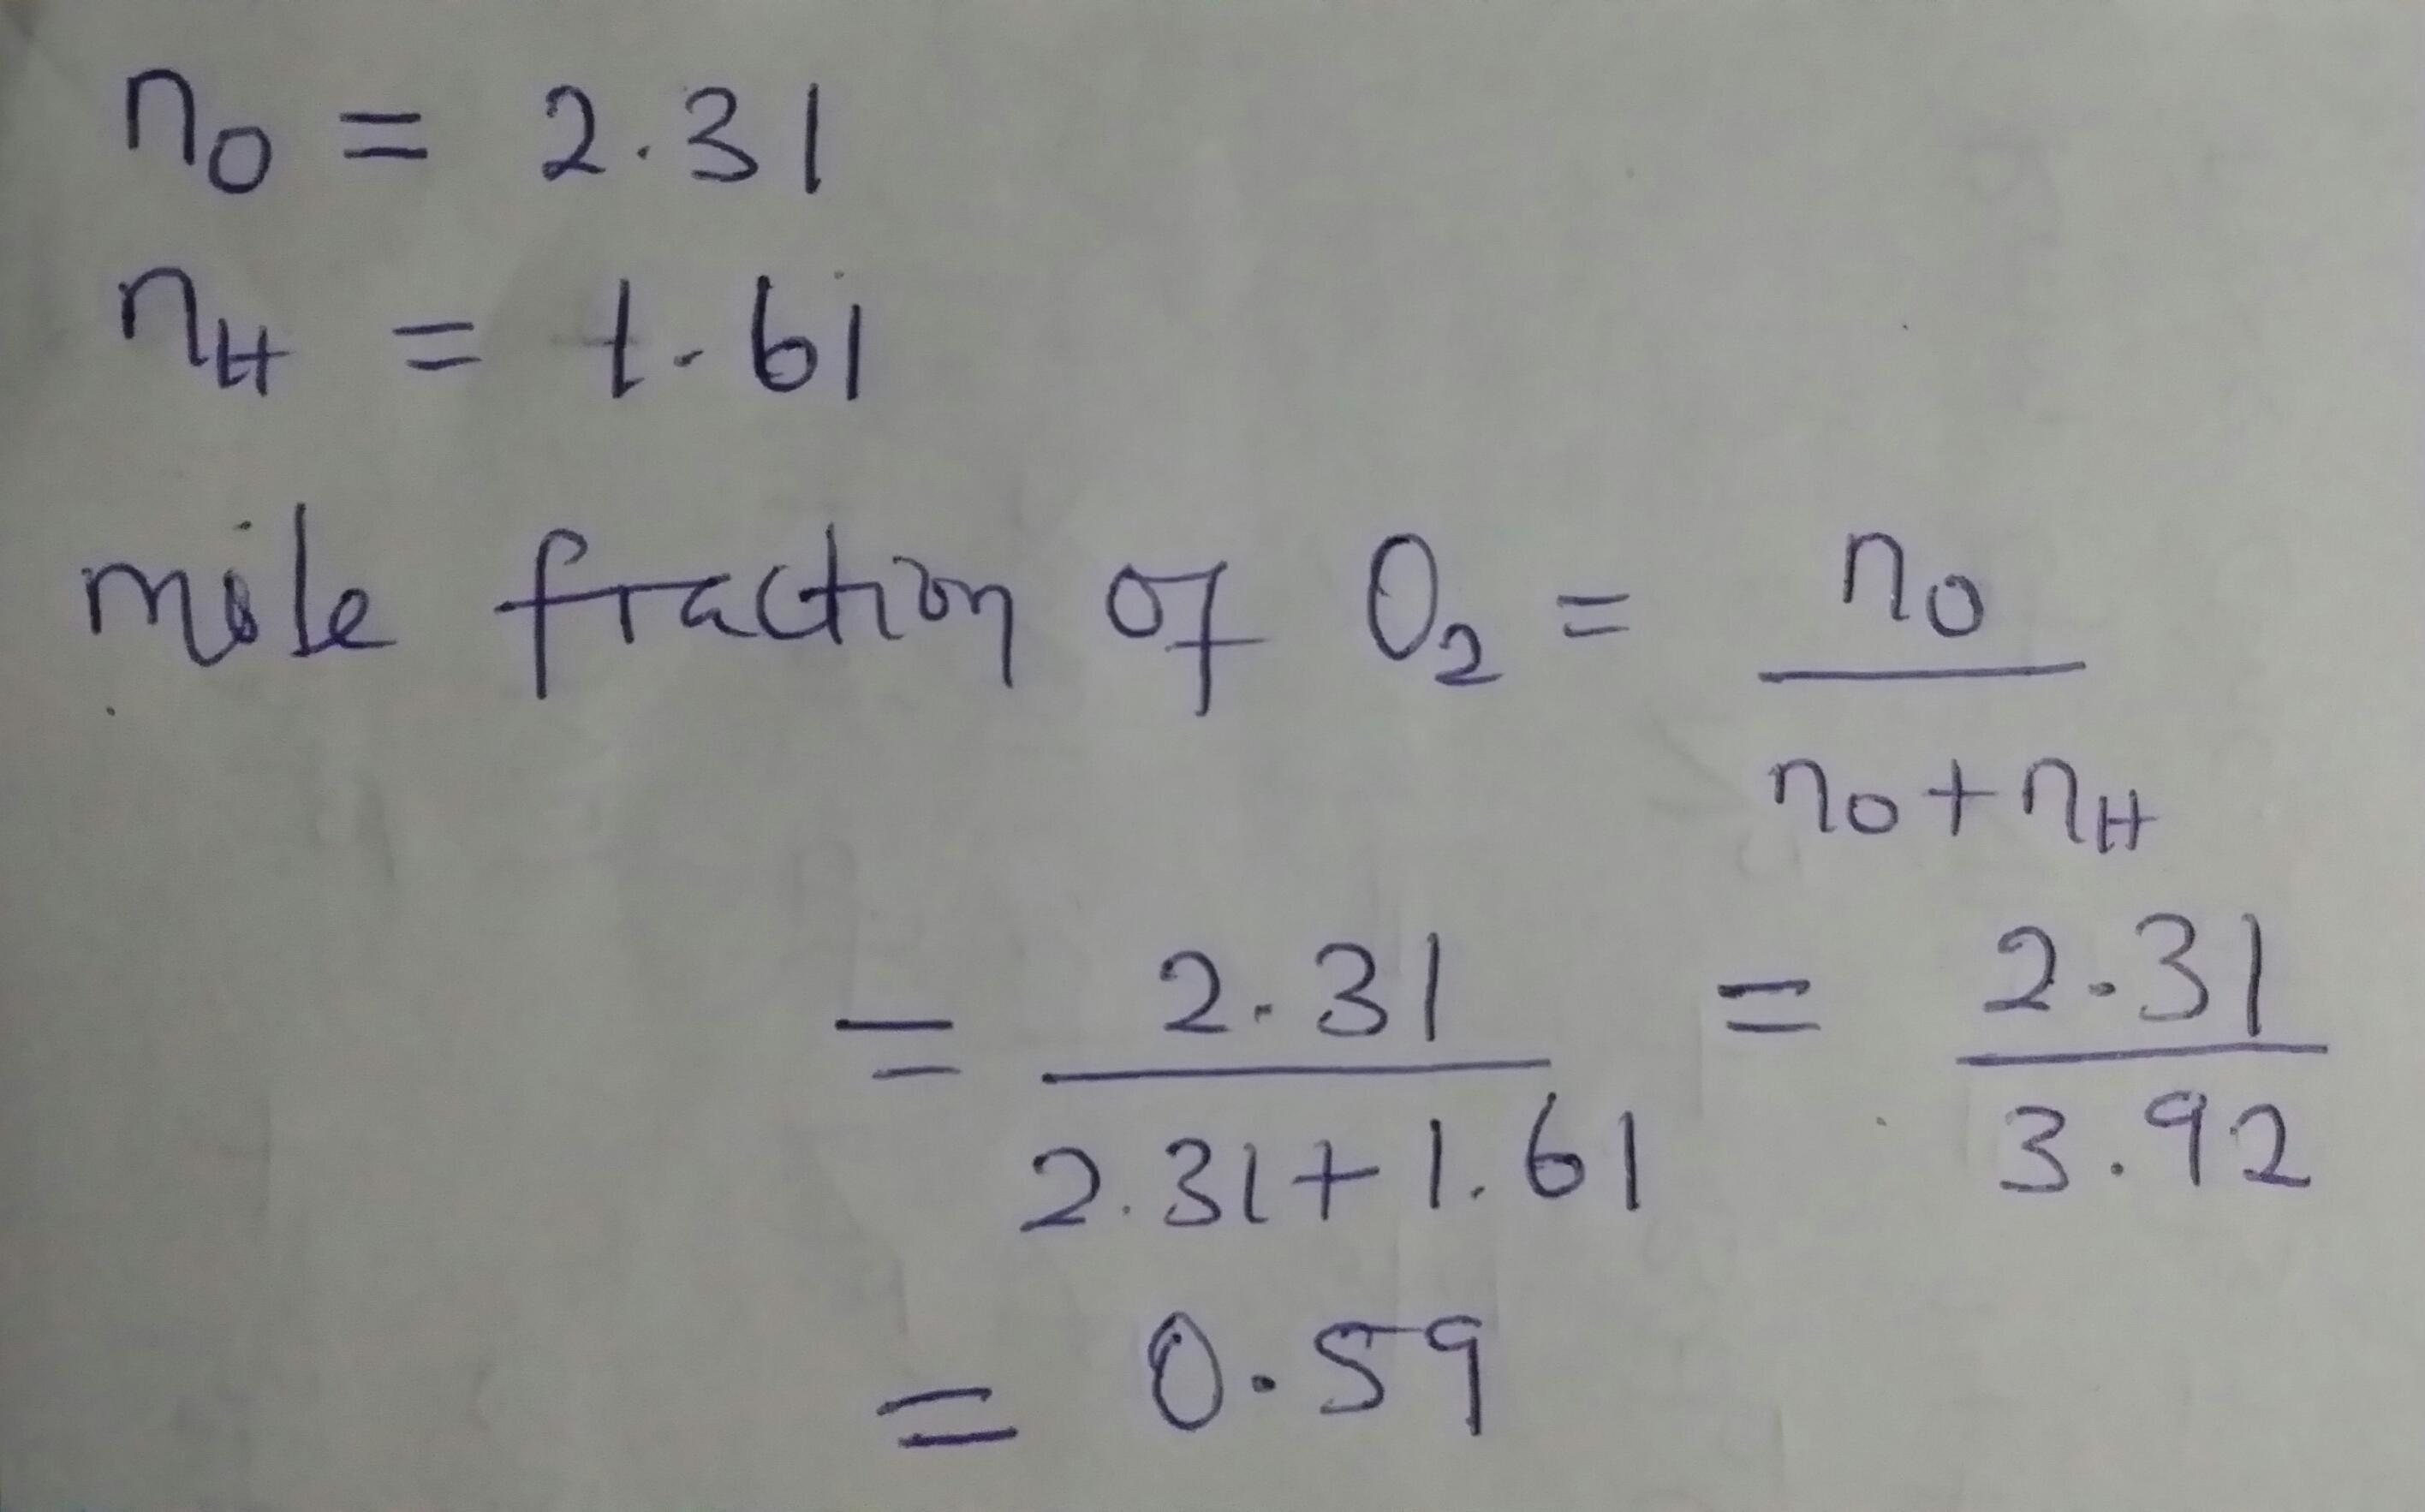 n₀ = 2.31
n_H = 1.61
mole fraction of O₂ = n₀ / n₀ + n_H
= 2.31 / 2.31 + 1.61 = 2.31 / 3.92
= 0.59